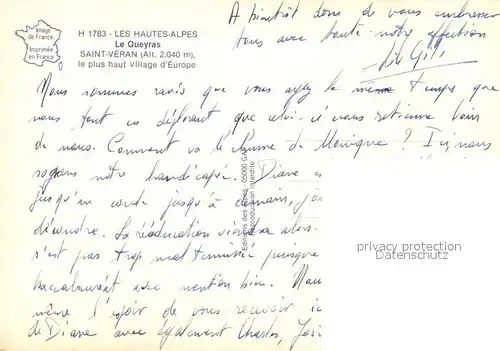 Image
de France
Imprimée
en France
H 1783 - LES HAUTES-ALPES
Le Queyras
SAINT-VÉRAN (Alt. 2.040 m),
le plus haut Village d'Europe
A bientôt donc de vous embrasser
tous avec toute notre affection
Nous sommes ravis que vous ayez le même temps que
nous tout en déplorant que celui-ci vous retienne loin
de nous. Comment va le de Monique ? Ici, nous
notre handicapé. Diane
jusqu'à demain,
descendre. La rééducation alors.
s'est pas trop mal terminée puisque
baccalauréat avec mention bien. Nou
même l'espoir de vous recevoir ic
de Diane avec également Charles, José
Editions des Alpes - 05000 GAP
Reproduction interdite
privacy protection
Datenschutz